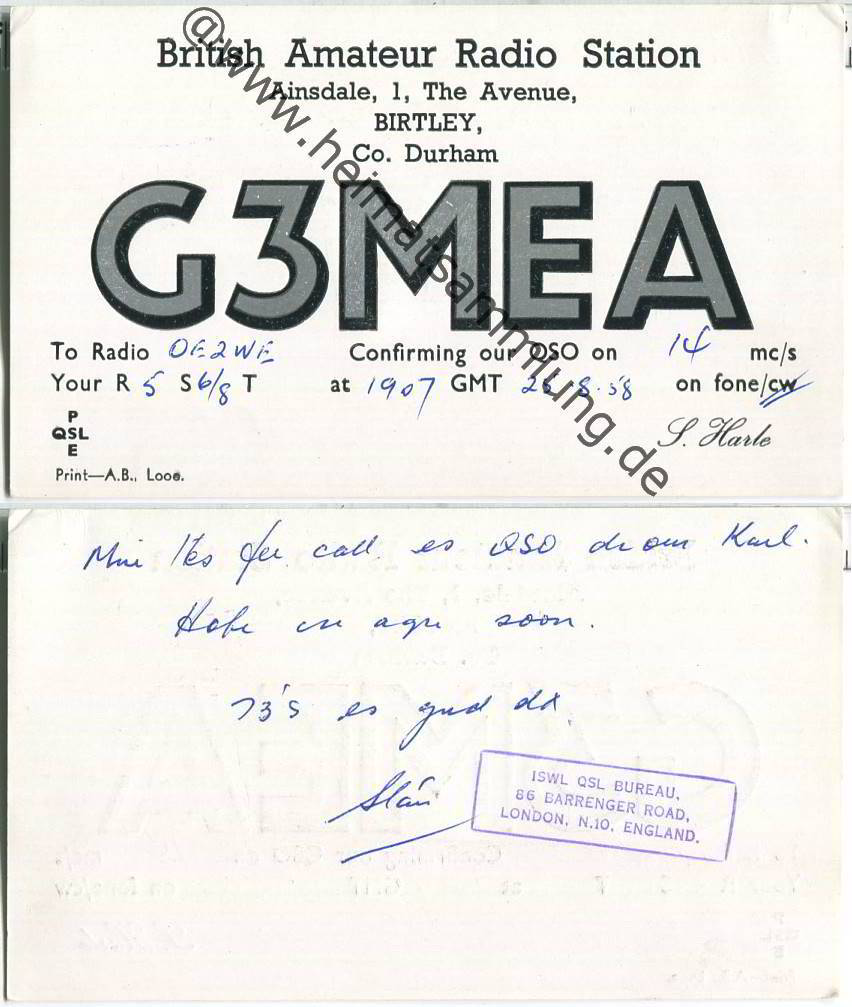 British Amateur Radio Station
Ainsdale, 1, The Avenue,
BIRTLEY,
Co. Durham
G3MEA
To Radio OE2WE Confirming our QSO on 14 mc/s
Your R 5 S 6/8 T at 1907 GMT 8.58 on fone/cw
P
QSL
E
S. Harle
Print—A.B., Looe.
@www.heimatsammlung.de
call es QSO dr om Karl.
Hope cu agn soon.
73's es gud dx.
Stan
ISWL QSL BUREAU,
86 BARRENGER ROAD,
LONDON, N.10, ENGLAND.